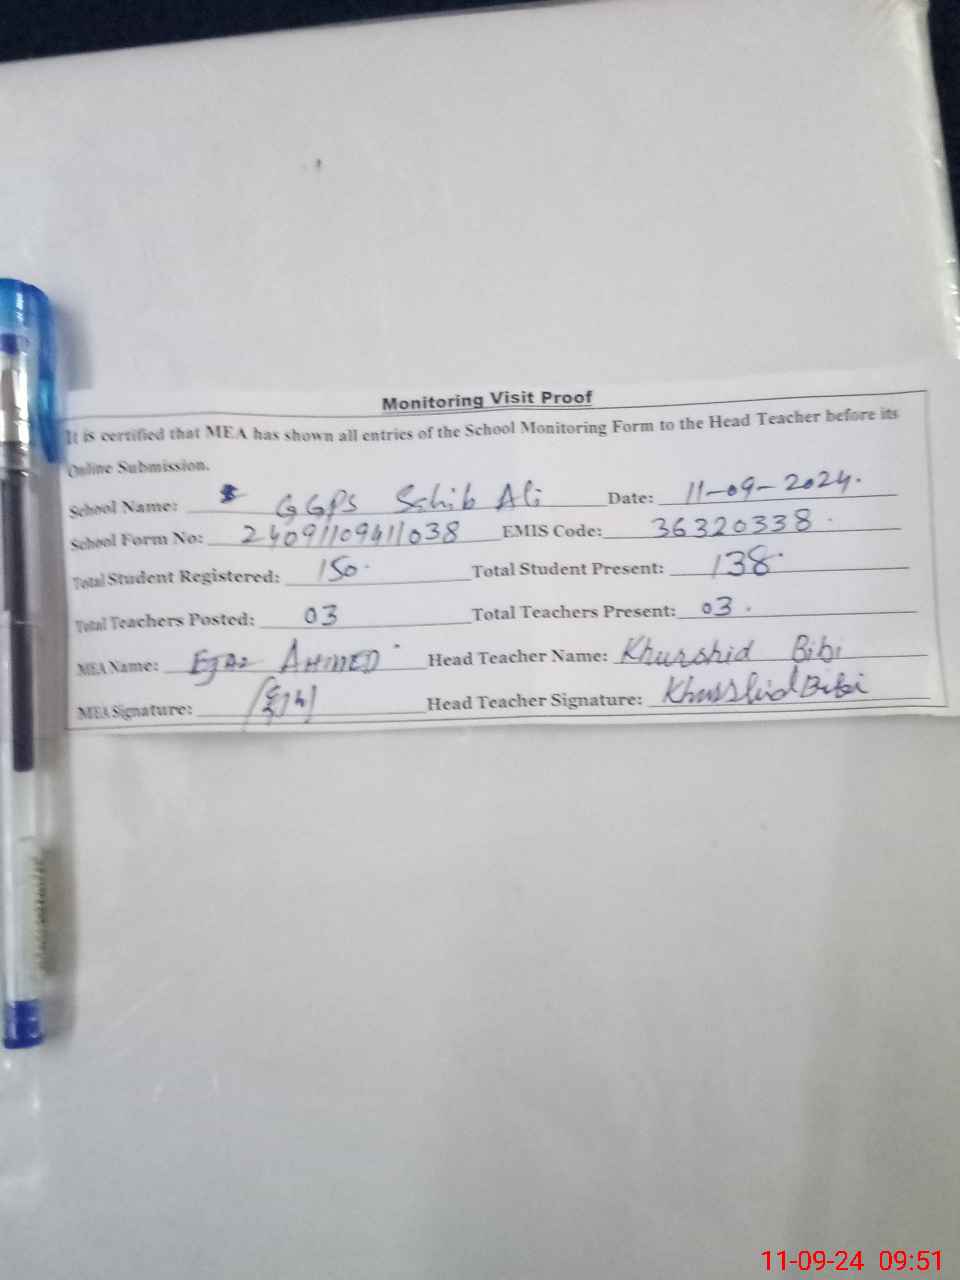 Monitoring Visit Proof
It is certified that MEA has shown all entries of the School Monitoring Form to the Head Teacher before its
Online Submission.
School Name: GGPS Sahib Ali Date: 11-09-2024.
School Form No: 24091109411038 EMIS Code: 36320338.
Total Student Registered: 150. Total Student Present: 138.
Total Teachers Posted: 03 Total Teachers Present: 03.
MEA Name: EJAZ AHMED Head Teacher Name: Khurshid Bibi
MEA Signature: Head Teacher Signature: Khurshid Bibi
11-09-24 09:51